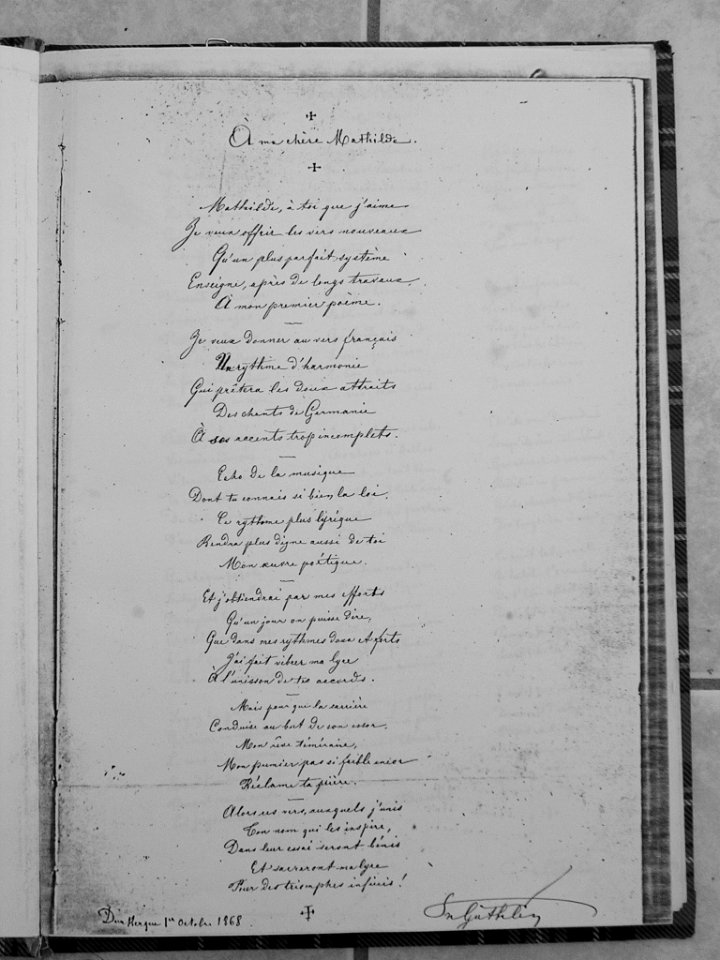 À ma chère Mathilde.
Mathilde, à toi que j'aime
Je veux offrir les vers nouveaux
Qu'un plus parfait système
Enseigne, après de longs travaux,
À mon premier poème.
Je veux donner au vers français
Un rythme d'harmonie
Qui prêtera les doux attraits
Des chants de Germanie
À ses accents trop incomplets.
Echo de la musique
Dont tu connais si bien la loi,
Ce rythme plus lyrique
Rendra plus digne aussi de toi
Mon œuvre poétique.
Et j'obtiendrai par mes efforts
Qu'un jour on puisse dire,
Que dans mes rythmes doux et forts
J'ai fait vibrer ma lyre
À l'unisson de tes accords.
Mais pour que la carrière
Conduise au but de son essor,
Mon rêve téméraire,
Mon premier pas si faible encor
Réclame ta prière.
Alors ces vers, auxquels j'unis
Ton nom qui les inspire,
Dans leur essai seront bénis
Et sacreront ma lyre
Pour des triomphes infinis!
Dunkerque 1er Octobre 1868